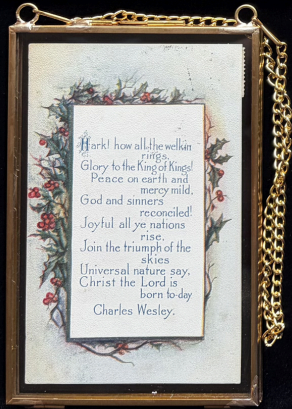 Hark! how all the welkin
rings,
Glory to the King of Kings!
Peace on earth and
mercy mild,
God and sinners
reconciled!
Joyful all ye nations
rise,
Join the triumph of the
skies
Universal nature say,
Christ the Lord is
born to-day
Charles Wesley.